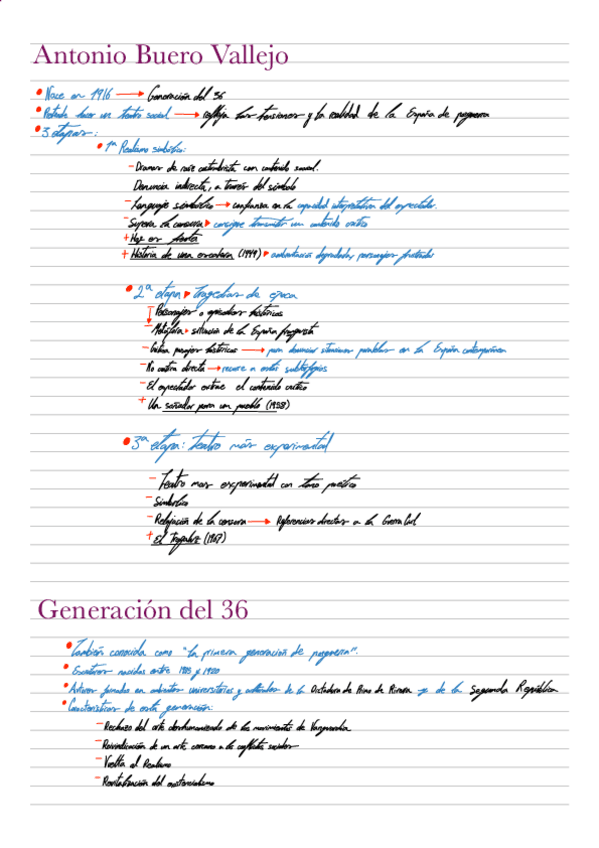 Antonio Buero Vallejo
Nace en 1916 → Generación del 36
Pretende hacer un teatro social → refleja las tensiones y la realidad de la España de posguerra
3 etapas:
1ª Realismo simbólico:
- Dramas de raíz costumbrista con contenido social.
Denuncia indirecta, a través del símbolo
- Lenguaje simbólico → confianza en la capacidad interpretativa del espectador.
- Supera la censura consigue transmitir un contenido crítico
+ Hoy es fiesta
+ Historia de una escalera (1949) ambientación degradada, personajes frustrados
2ª etapa tragedias de época
Personajes o episodios históricos
Metáfora situación de la España franquista
- Utiliza pasajes históricos → para denunciar situaciones paralelas en la España contemporánea
- No critica directa → recurre a estos subterfugios
- El espectador extrae el contenido crítico
+ Un soñador para un pueblo (1958)
3ª etapa: teatro más experimental
- Teatro mas experimental con tono poético
- Simbólico
- Relajación de la censura → Referencias directas a la Guerra Civil
+ El Tragaluz (1967)
Generación del 36
También conocida como "la primera generación de posguerra".
Escritores nacidos entre 1905 y 1920
Autores formados en ambientes universitarios y culturales de la Dictadura de Primo de Rivera y de la Segunda República
Características de esta generación:
- Rechazo del arte deshumanizado de los movimientos de Vanguardia
- Reivindicación de un arte cercano a los conflictos sociales
- Vuelta al Realismo
- Revitalización del existencialismo